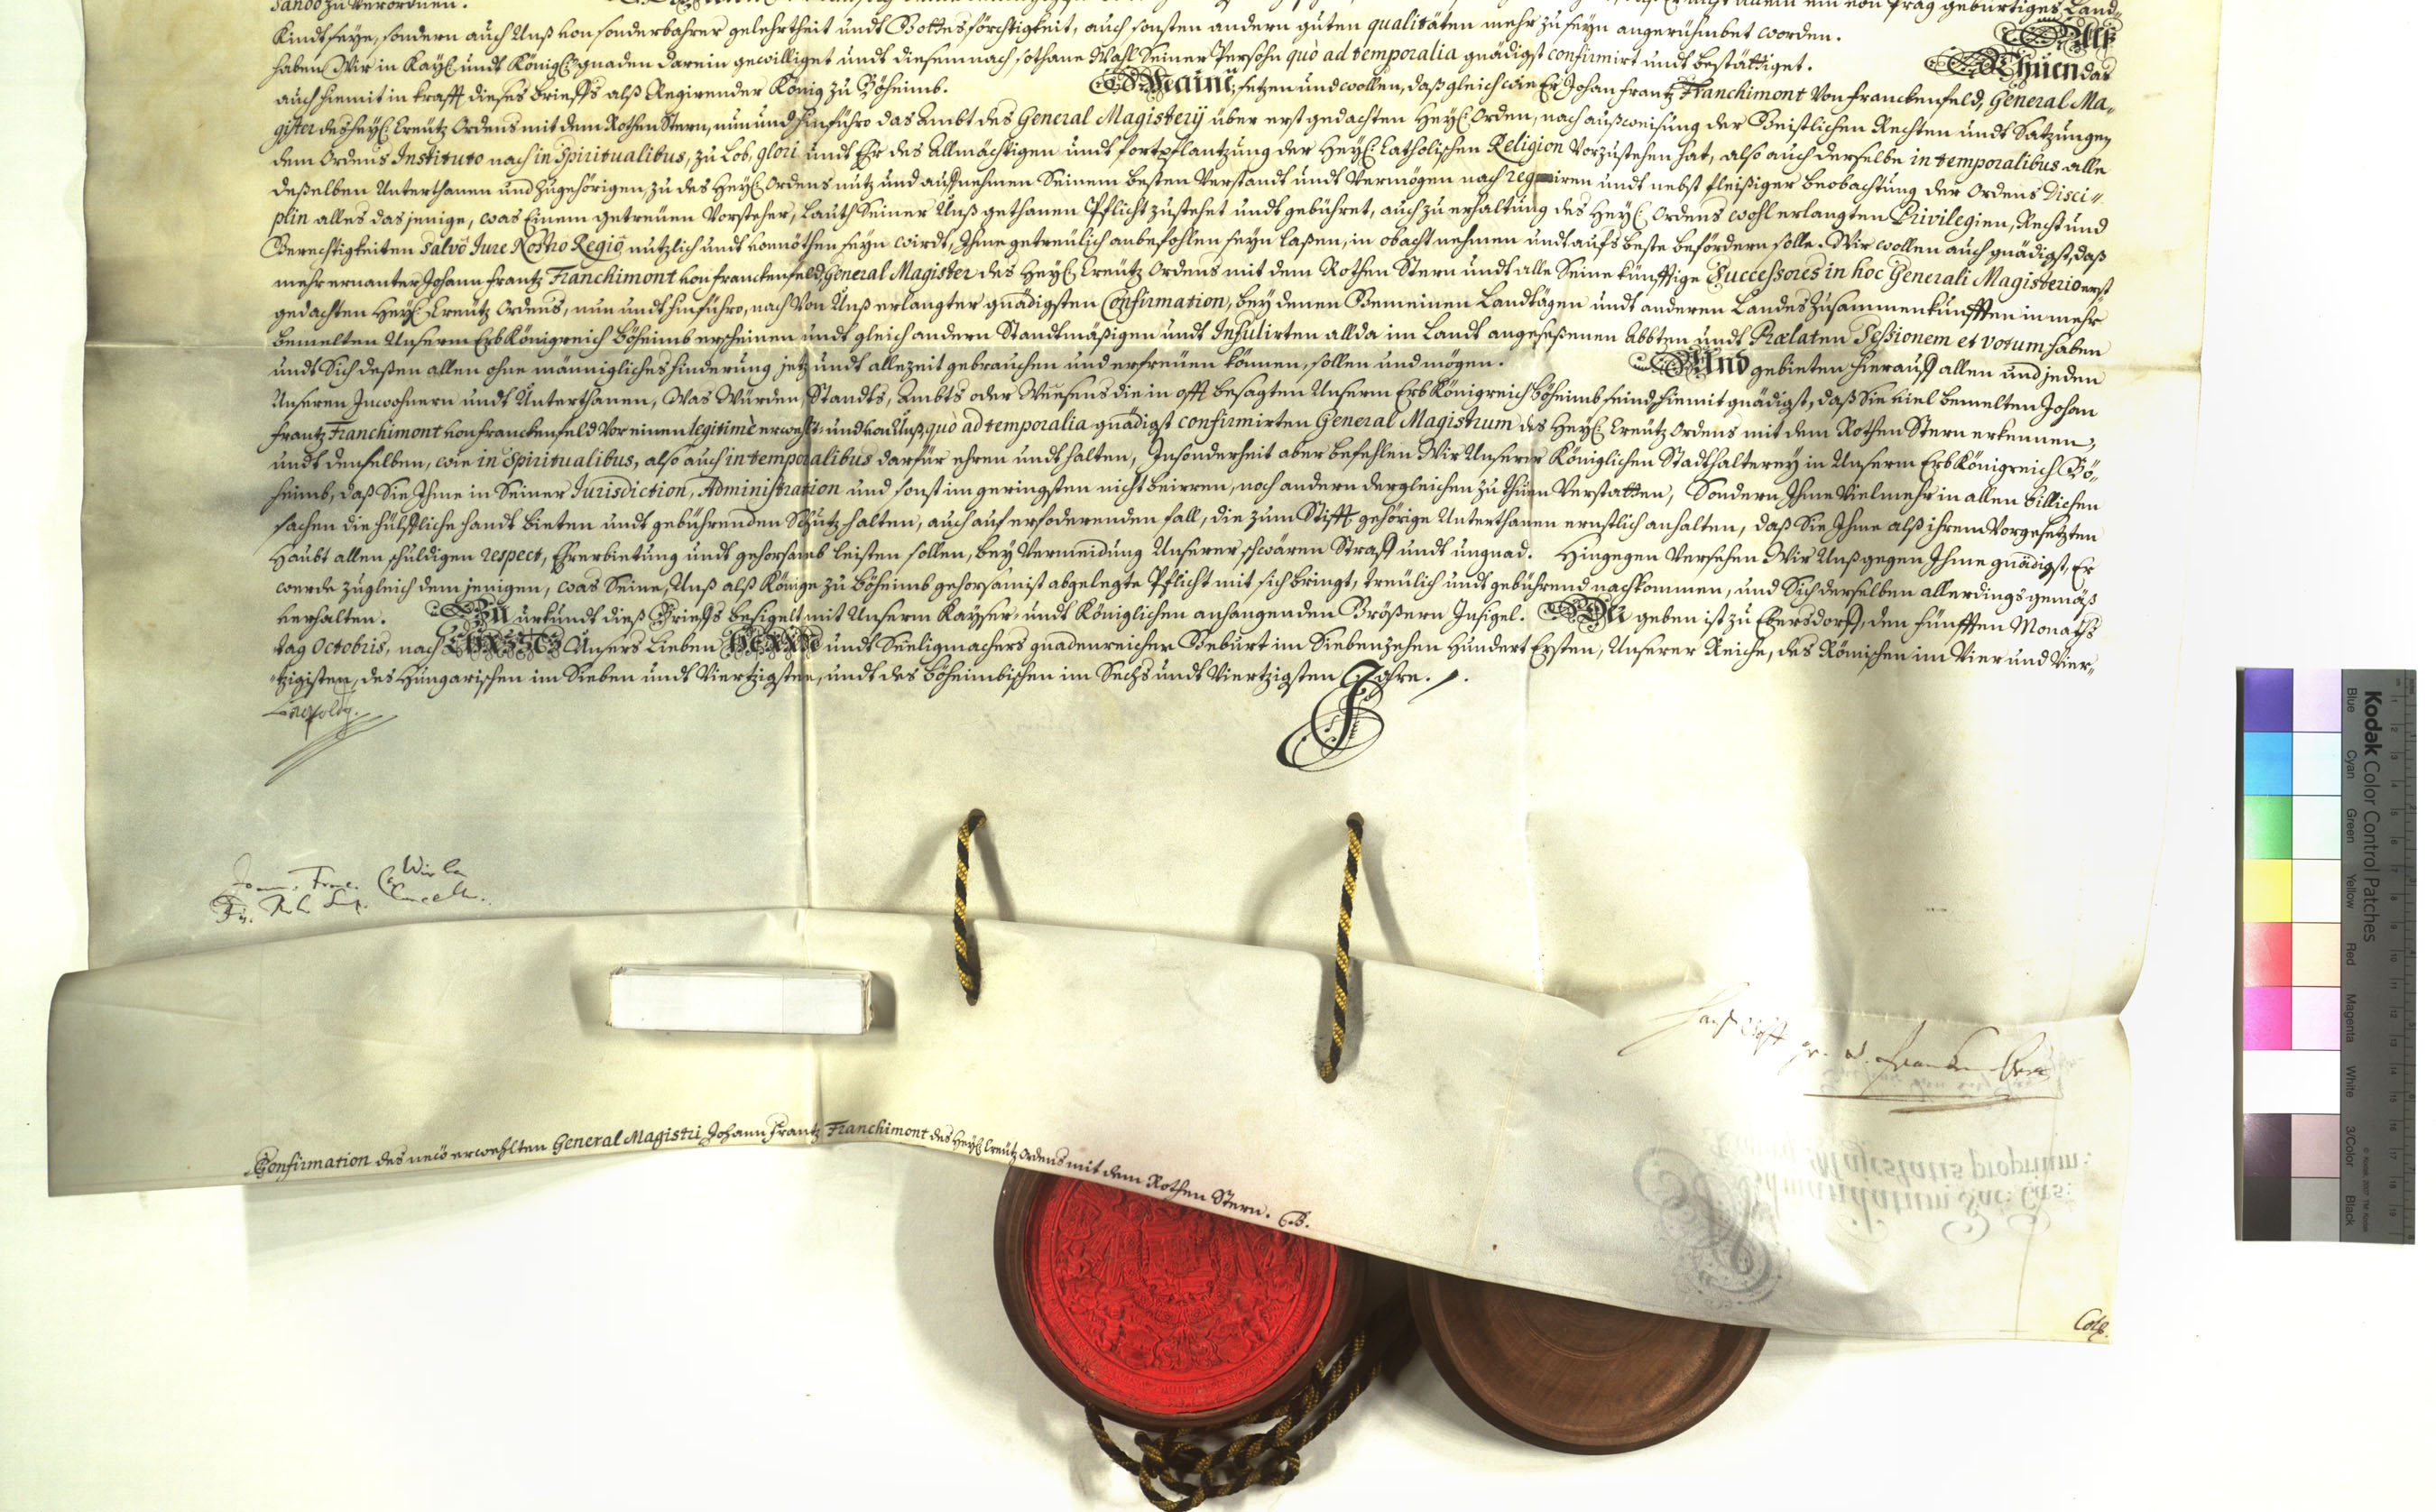 sando zu verordnen.
Kindt seye, sondern auch Unß von sonderbahrer gelehrtheit undt Gottesförchtigkeit, auch sonsten andern guten qualitäten mehr zu seyn angerühmbet worden. Alß
haben Wir in Kay: undt König: gnaden darein gewilliget undt diesemnach sothane Wahl Seiner Persohn quò ad temporalia gnädigst confirmirt undt bestättiget. Thuen das
auch hiemit in krafft dieses brieffs alß Regirender König zu Böheimb. Mainē, setzen und wollen, daß gleich wie Er Johan Frantz Franchimont Von Franckenfeld, General Ma-
gister des Heyl: Creütz Ordens mit dem Rothen Stern, nun und hinführo das Ambt des General Magisterij über erst gedachten Heyl: Orden, nach außweisung der Geistlichen Rechten undt Satzungen
dem Ordens Instituto nach in Spiritualibus, zu Lob, glori undt Ehr des Allmächtigen undt fortpflantzung der Heyl: Catholischen Religion Vorzustehen hat, also auch derselbe in temporalibus alle
deßelben Unterthanen und Zugehörigen, zu des Heyl: Ordens nutz und aufnehmen Seinem besten Verstandt undt Vermögen nach regiren undt nebst fleißiger beobachtung der Ordens Disci-
plin alles das jenige, was Einem getreüen Vorsteher, Lauth Seiner Unß gethanen Pflicht zustehet undt gebühret, auch zu erhaltung des Heyl: Ordens wohl erlangten Privilegien, Recht und
Gerechtigkeiten Salvô Jure Nostro Regiô nutzlich undt vonnöthen seyn wirdt, Ihme getreülich anbefohlen seyn laßen, in obacht nehmen undt aufs beste befördern solle. Wir wollen auch gnädigst, daß
mehrernanter Johann Frantz Franchimont von Franckenfeld, General Magister des Heyl: Creütz Ordens mit dem Rothen Stern undt alle Seine künfftige Successores in hoc Generali Magisterio erst
gedachten Heyl: Creütz Ordens, nun undt hinführo, nach Von Unß erlangter gnädigsten Confirmation, bey denen Gemeinen Landtägen undt anderen Landes Zusammenkunfften in mehr
bemelten Unserm Erb Königreich Böheimb erscheinen undt gleich andern Standtmäßigen undt Insulirten allda im Landt angeseßenen Abbten undt Prælaten Sessionem et votum haben
undt Sich deßen allen ohne männigliches hinderung jetz undt allezeit gebrauchen und erfreüen können, sollen und mögen. Und gebieten hierauf allen und jeden
Unseren Inwohnern undt Unterthanen, Was Würden, Standts, Ambts oder Weesens die in offt besagten Unserm Erb Königreich Böheimb seind, hiemit gnädigst, daß Sie viel bemelten Johan
Frantz Franchimont von Franckenfeld Vor einen legitimè erwehlt- und von Unß, quò ad temporalia gnädigst confirmirten General Magistrum des Heyl: Creütz Ordens mit dem Rothen Stern erkennen,
undt denselben, wie in Spiritualibus, also auch in temporalibus darfür ehren undt halten, Insonderheit aber befehlen Wir Unserer Königlichen Stadthalterey in Unserm Erb Königreich Bö-
heimb, daß Sie Ihme in Seiner Jurisdiction, Administration und sonst im geringsten nicht beirren, noch andern dergleichen zu thuen Verstatten, Sondern Ihme Vielmehr in allen billichen
sachen die hülffliche handt bieten undt gebührenden Schutz halten, auch auf erfoderenden fall, die zum Stifft gehörige Unterthanen ernstlich anhalten, daß Sie Ihme alß ihrem Vorgesetzten
Haubt allen schuldigen respect, Ehrerbietung undt gehorsamb leisten sollen, bey Vermeidung Unserer schwären Straff undt ungnad. Hingegen Versehen Wir Unß gegen Ihme gnädigst, Er
werde zugleich dem jenigen, was Seine, Unß alß Könige zu Böheimb gehorsamist abgelegte Pflicht mit sich bringt, treülich undt gebührend nachkommen, und Sich derselben allerdings gemäß
verhalten. Zu urkundt dieß Brieffs besigelt mit Unserm Kayser- undt Königlichen anhangenden Größern Insigel. Der geben ist zu Ebersdorff, den fünfften Monaths
tag Octobris, nach Christi Unsers Lieben HERRN undt Seeligmachers gnadenreicher Geburt im Siebenzehen Hundert Ersten, Unserer Reiche, des Römischen im Vier und Vier-
tzigisten, des Hungarischen im Sieben undt Viertzigsten, undt des Böheimbischen im Sechs undt Viertzigsten Jahre.
Leopoldt.
Joann. Franc. Wirben
Franken
Confirmation des neü erwehlten General Magistri Johann Frantz Franchimont des Heyl: Creütz Ordens mit dem Rothen Stern. C.B.
Ad mandatum Sac: Cæs:
Majestatis proprium.
Coll.
Kodak Color Control Patches
Blue Cyan Green Yellow Red Magenta White 3/Color Black